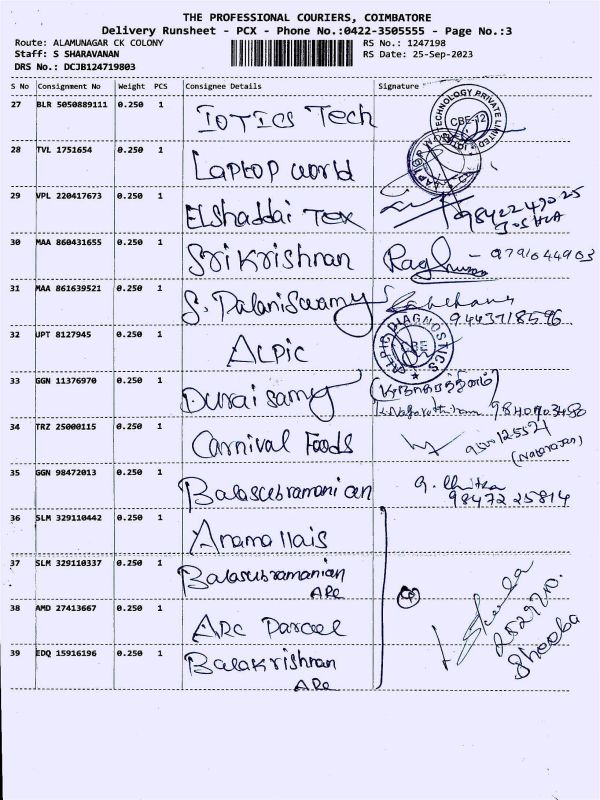 THE PROFESSIONAL COURIERS, COIMBATORE
Delivery Runsheet - PCX - Phone No.:0422-3505555 - Page No.:3
Route: ALAMUNAGAR CK COLONY RS No.: 1247198
Staff: S SHARAVANAN RS Date: 25-Sep-2023
DRS No.: DCJB124719803
S No Consignment No Weight PCS Consignee Details Signature
27 BLR 5050889111 0.250 1 IOTICS Tech
TECHNOLOGY PRIVATE LIMITED
CBE-12
28 TVL 1751654 0.250 1 Laptop world
29 VPL 220417673 0.250 1 Elshaddai Tex 9842249025
JOSHUA
30 MAA 860431655 0.250 1 Srikrishnan Raghu 9791044903
31 MAA 861639521 0.250 1 S. Palaniswamy
9443718596
32 UPT 8127945 0.250 1 ALPIC
ALPIC DIAGNOSTICS
CBE
33 GGN 11376970 0.250 1 Duraisamy
34 TRZ 25000115 0.250 1 Carnival Foods
(Natarajan)
35 GGN 98472013 0.250 1 Balasubramanian G. Chitra
98472 25814
36 SLM 329110442 0.250 1 Anamallais
37 SLM 329110337 0.250 1 Balasubramanian
ARC
38 AMD 27413667 0.250 1 ARC Parcel
39 EDQ 15916196 0.250 1 Balakrishnan
ARC
2529210.
Sheeba